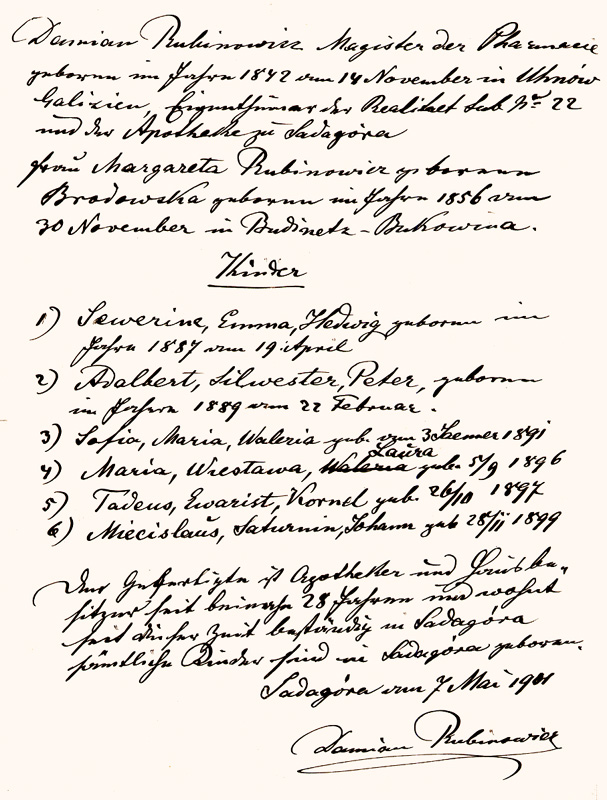 Damian Rubinowicz Magister der Pharmacie
geboren im Jahre 1842 am 14 November in Uhnów
Galizien, Eigenthümer der Realitaet sub Nr 22
und der Apotheke zu Sadagóra
Frau Margareta Rubinowicz geborene
Brodowska geboren im Jahre 1856 am
30 November in Budinetz - Bukowina.
Kinder
1) Sewerine, Emma, Hedwig geboren im
Jahre 1887 am 19 April
2) Adalbert, Silwester, Peter, geboren
im Jahre 1889 am 22 Februar.
3) Sofia, Maria, Waleria geb. am 3 Jaenner 1891
Laura
4) Maria, Wiestawa, Waleria geb. 5/9 1896
5) Tadeus, Ewarist, Kornel geb. 26/10 1897
6) Miecislaus, Saturnin, Johann geb 28/11 1899
Der Gefertigte ist Apotheker und Hausbe-
sitzer seit beinahe 28 Jahren und wohnt
seit dieser Zeit beständig in Sadagóra
sämtliche Kinder sind in Sadagóra geboren.
Sadagóra am 7 Mai 1901
Damian Rubinowicz